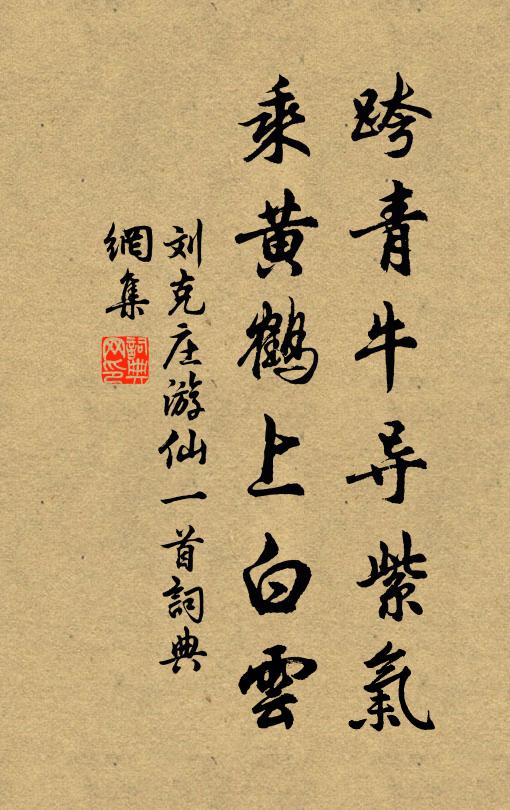 跨青牛导紫氣
乘黄鶴上白雲
刘克庄游仙一首詞典
網集
詞典
网印